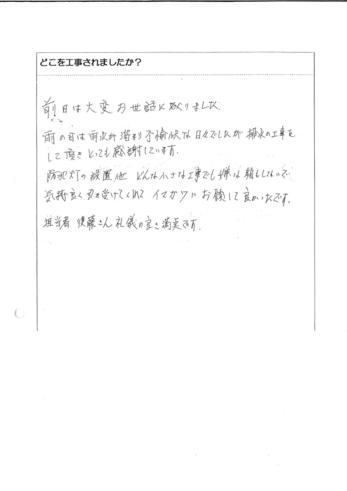 どこを工事されましたか？
前日は大変お世話になりました
雨の日は雨水が溜まり不愉快な日々でしたが排水の工事を
して頂きとっても感謝しています.
防犯灯の設置他 どんな小さな工事でも嫌な顔もしないで
気持良く引き受けてくれて イマガワに お願して良かったです.
担当者 後藤さん 礼儀の良き満足です.